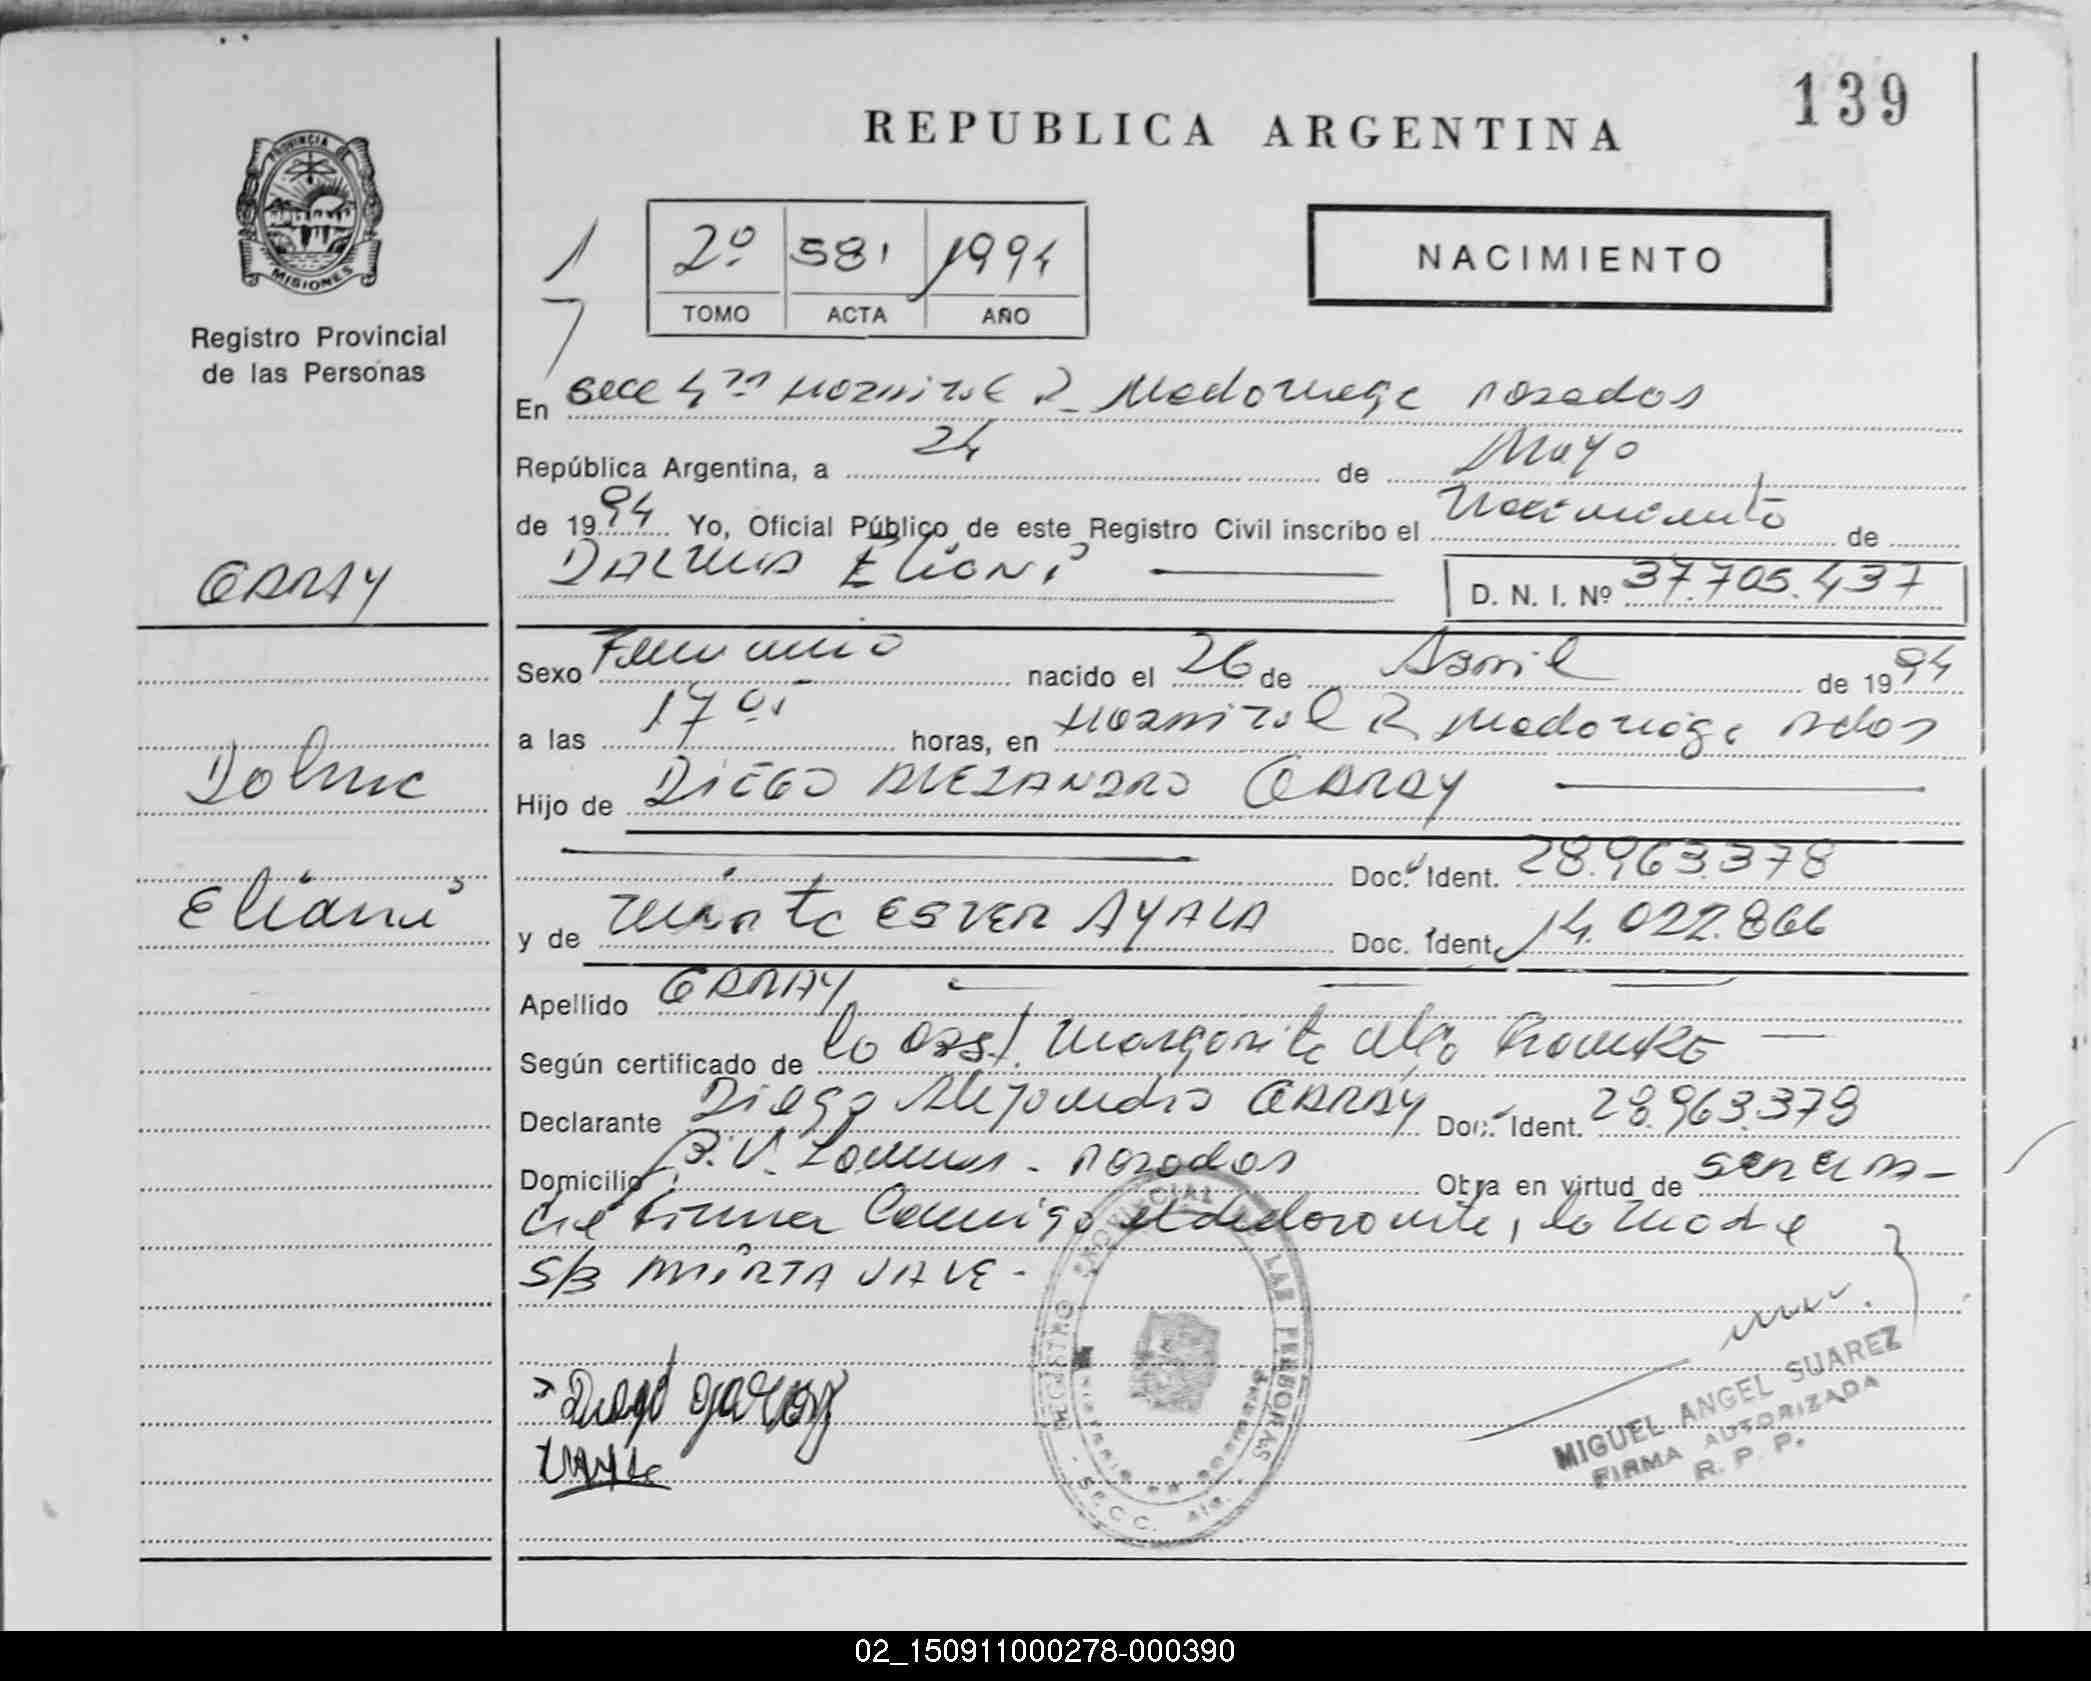 139
REPUBLICA ARGENTINA
PROVINCIA DE
MISIONES
Registro Provincial
de las Personas
2º 581 1994
TOMO ACTA AÑO
NACIMIENTO
En Secc 4ta Hospital R Madariaga Posadas
República Argentina, a 24 de Mayo
de 1994 Yo, Oficial Público de este Registro Civil inscribo el Nacimiento de
GARAY
DALMA Eliani D. N. I. Nº 37.705.437
Sexo Femenino nacido el 26 de Abril de 1994
a las 17 horas, en Hospital R Madariaga Pdas
Dalma
Hijo de DIEGO ALEJANDRO GARAY
Doc. Ident. 28.963.378
Eliani
y de Mirta ESTER AYALA Doc. Ident. 14.022.866
Apellido GARAY
Según certificado de la Obst. Margarita
Declarante Diego Alejandro GARAY Doc. Ident. 28.963.378
Domicilio B. V. Posadas Otra en virtud de
Firma Conmigo el declarante, la Madre
S/B MIRTA VALE-
Diego garay
REGISTRO PROVINCIAL DE LAS PERSONAS
MIGUEL ANGEL SUAREZ
FIRMA AUTORIZADA
R. P. P.
02_150911000278-000390